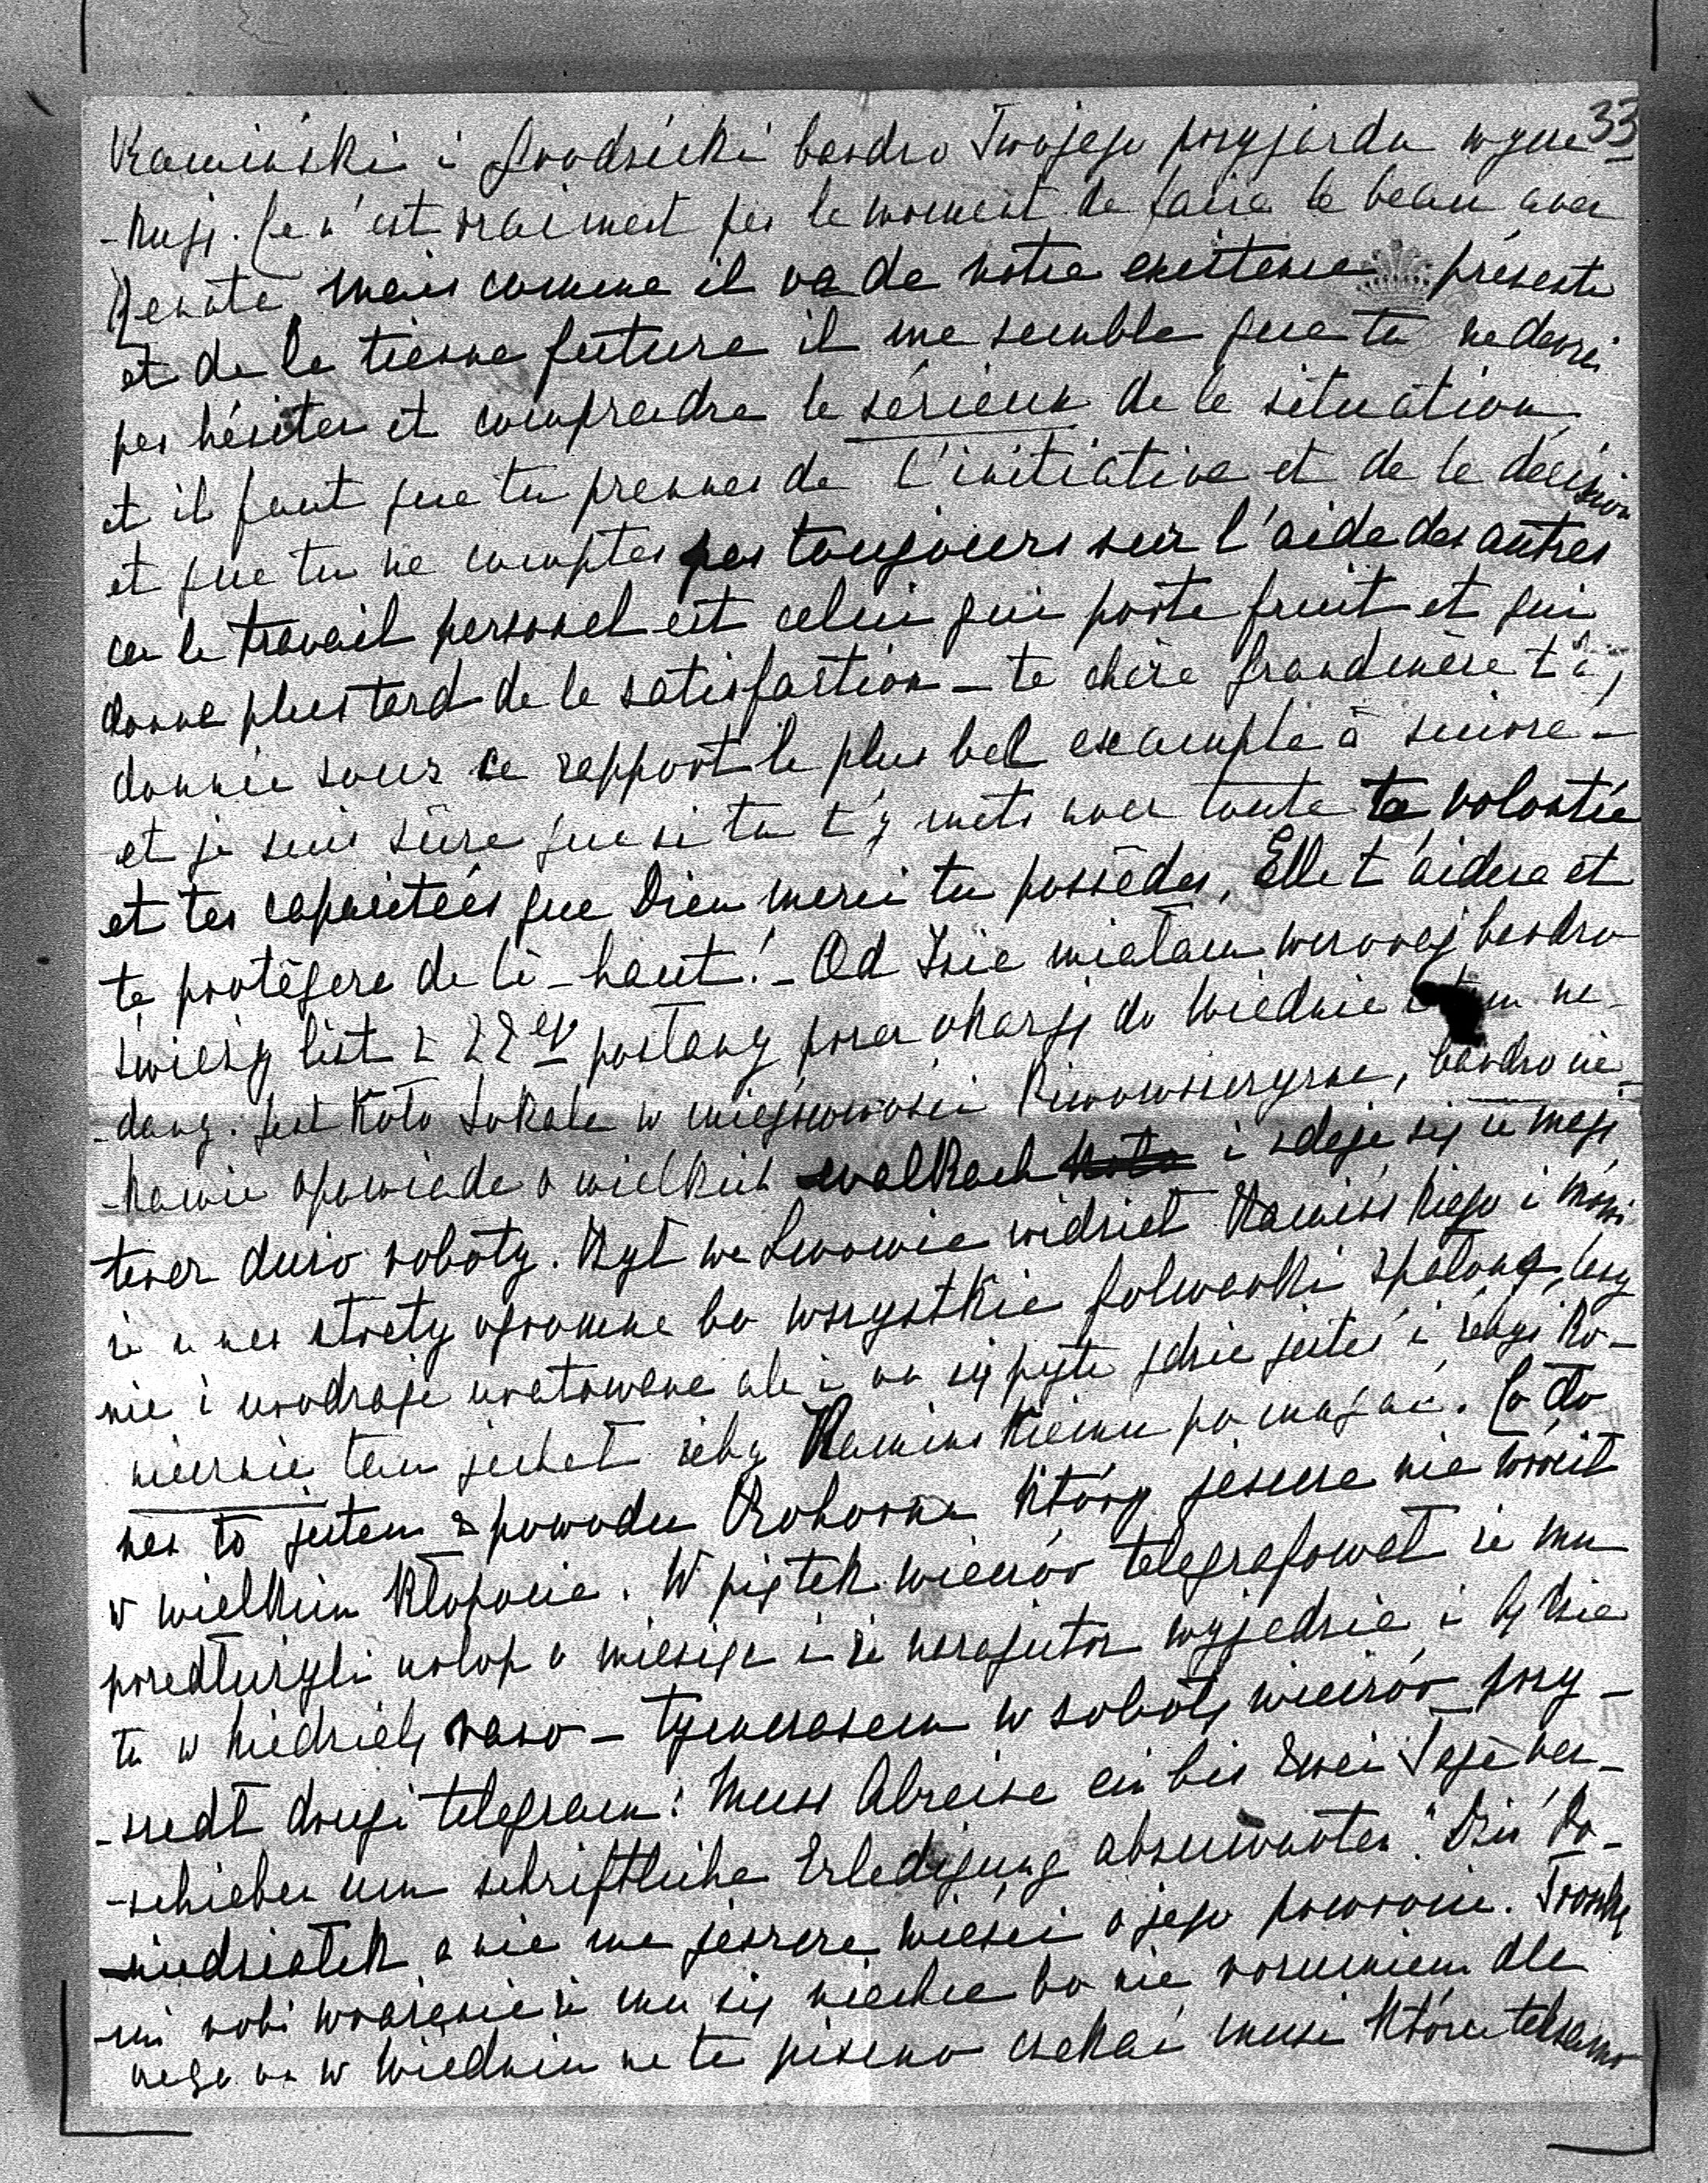 33
Kamiński i Grodzicki bardzo Twojego przyjazdu wycze-
-kują. Ce n'est vraiment pas le moment de faire le beau avec
Renate mais comme il va de notre existence présente
et de la tienne future il me semble que tu ne devrais
pas hésiter et comprendre le sérieux de la situation
et il faut que tu prennes de l'initiative et de la décision
et que tu ne comptes pas toujours sur l'aide des autres
car le travail personel est celui qui porte fruit et qui
donne plus tard de la satisfaction – ta chère Grandmère t'a
donnée sous ce rapport le plus bel exemple à suivre –
et je suis sûre que si tu t'y mets avec toute ta volontée
et tes capacitées que Dieu merci tu possèdes, Elle t'aidera et
te protégera de là-haut! – Od Izia miałam wczoraj bardzo
świeży list z 22ego posłany przez okazję do Wiednia i tam na-
-dany. Jest koło Sokala w miejscowości, bardzo cie-
-kawie opowiada o wielkich walkach i zdaje się że mają
teraz dużo roboty. Był we Lwowie widział Kamińskiego i mówi
że u nas straty ogromne bo wszystkie folwarki spalone, lasy
nie i urodzaje uratowane ale i on się pyta gdzie jesteś i żebyś ko-
niecznie tam jechał żeby Kamińskiemu pomagać. Co do
nas to jestem z powodu który jeszcze nie wrócił
w wielkim kłopocie. W piątek wieczór telegrafował że mu
przedłużyli urlop o miesiąc i że nazajutrz wyjedzie i będzie
tu w niedzielę rano – tymczasem w sobotę wieczór przy-
-szedł drugi telegram: Muss Abreise ein bis zwei Tage ver-
-schieben um schriftliche Erledigung abzuwarten." Dziś Po-
-niedziałek a nie ma jeszcze wieści o jego powrocie. Troszkę
mi robi wrażenie że mu się niechce bo nie rozumiem dla
czego on w Wiedniu na te pismo czekać musi które taksamo